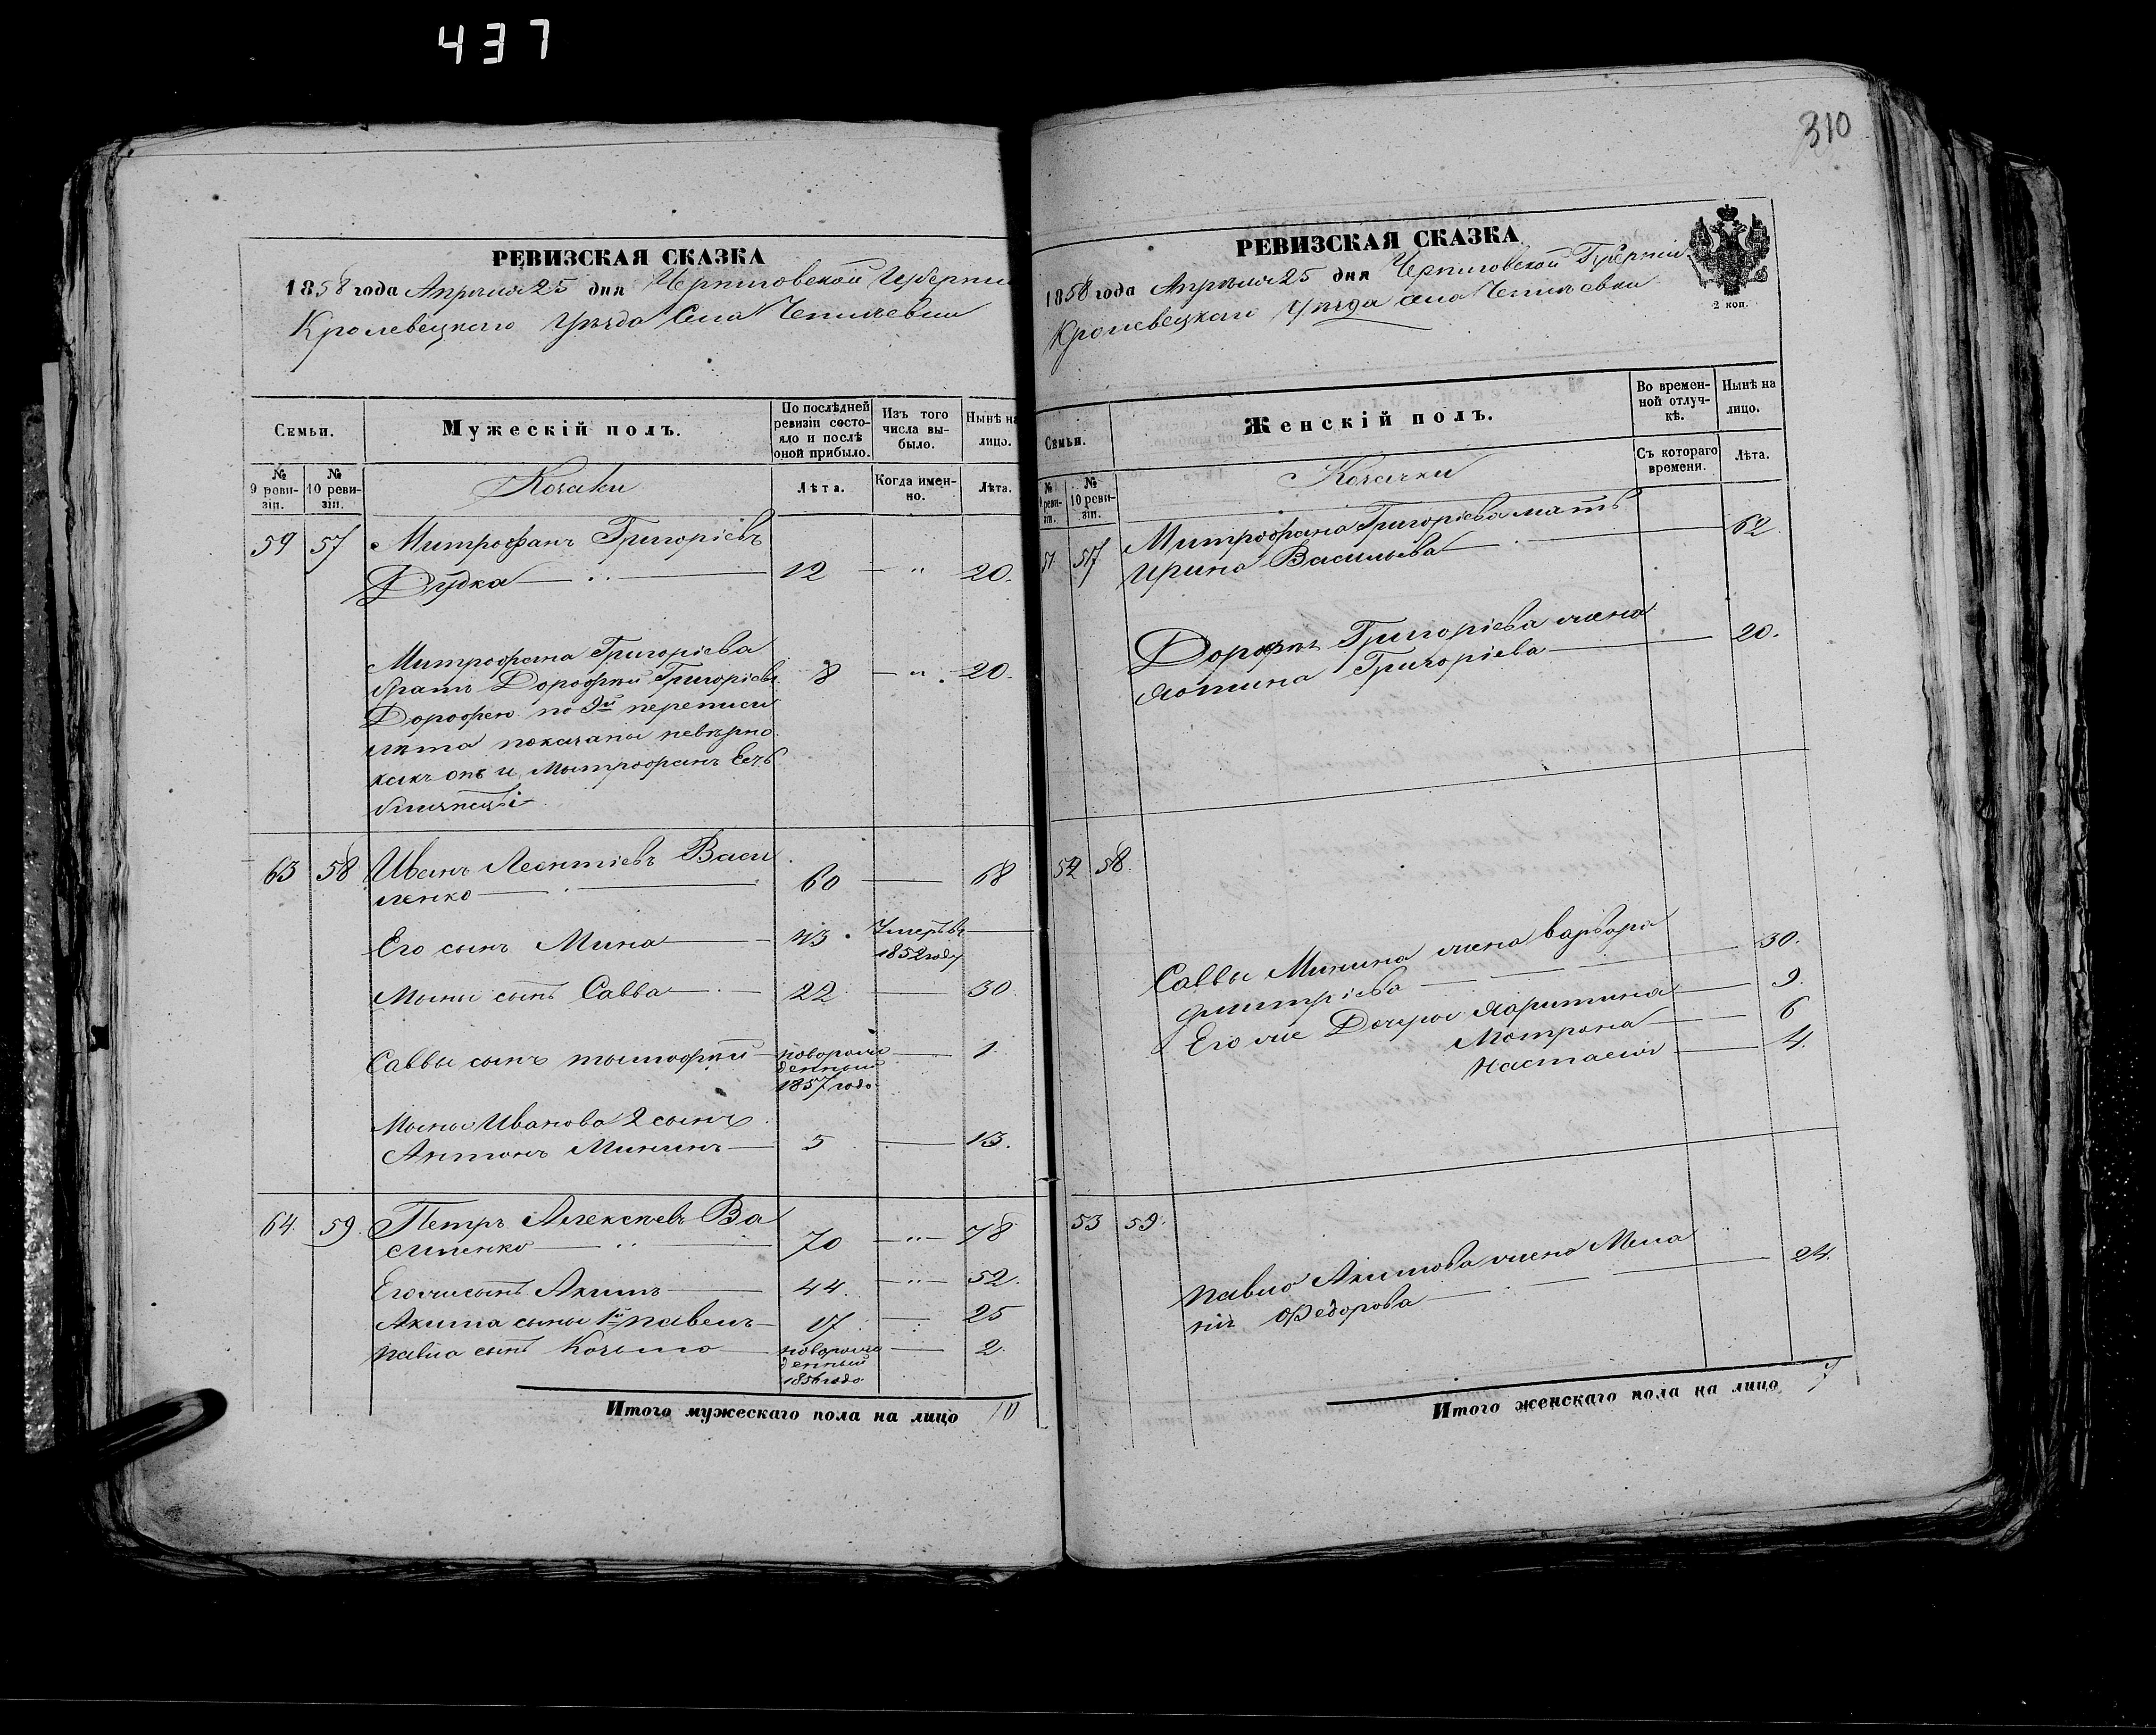 437
310
РЕВИЗСКАЯ СКАЗКА
1858 года Апреля 25 дня Черниговской Губернии
Кролевецкого Уезда Села Чепиевки
Семьи.
Мужескій полъ.
По послѣдней ревизіи состояло и послѣ оной прибыло.
Изъ того числа выбыло.
Нынѣ на лицо.
№ 9 ревизіи.
№ 10 ревизіи.
Козаки
Лѣта.
Когда именно.
Лѣта.
59 57 Митрофанъ Григоріевъ
Дудка 12 — " 20.
Митрофана Григоріева
братъ Дорофей Григоріевъ 8 — " 20.
Дорофею по 9й переписи
лѣта показаны невѣрно
какъ онъ и Митрофанъ Есть
близнецы
63 58 Иванъ Леонтіевъ Васи
ленко 60 — 68
Его сынъ Мина 43 Умеръ въ
1852 году
Мины сынъ Савва 22 — 30
Саввы сынъ тымофей новорож
денный
1857 года — 1
Мины Иванова 2 сынъ
Антонъ Мининъ 5 — 13.
64 59 Петръ Алексѣевъ Ва
силенко 70 — " — 78
Его же сынъ Акимъ 44. — " — 52.
Акима сыны 1й павелъ 17 — 25
павла сынъ Козьма новорож
денный
1856 года — 2
Итого мужескаго пола на лицо 10
РЕВИЗСКАЯ СКАЗКА
2 коп.
1858 года Апреля 25 дня Черниговской Губерніи
Кролевецкаго Уѣзда села Чепиевки
Семьи.
Женскій полъ.
Во временной отлучкѣ.
Нынѣ на лицо.
№ 9 ревизіи.
№ 10 ревизіи.
Козачки
Съ котораго времени.
Лѣта.
57 Митрофана Григоріева мать
Ирина Васильева 62
Дорофея Григоріева жена
Григоріева 20.
52 58.
Саввы Минина жена варвара
дмитріева 30.
Его же Дочери 9.
Мотрона 6
Настасия 4.
53 59.
павла Акимова жена Мела
нія Федорова 24.
Итого женскаго пола на лицо 7